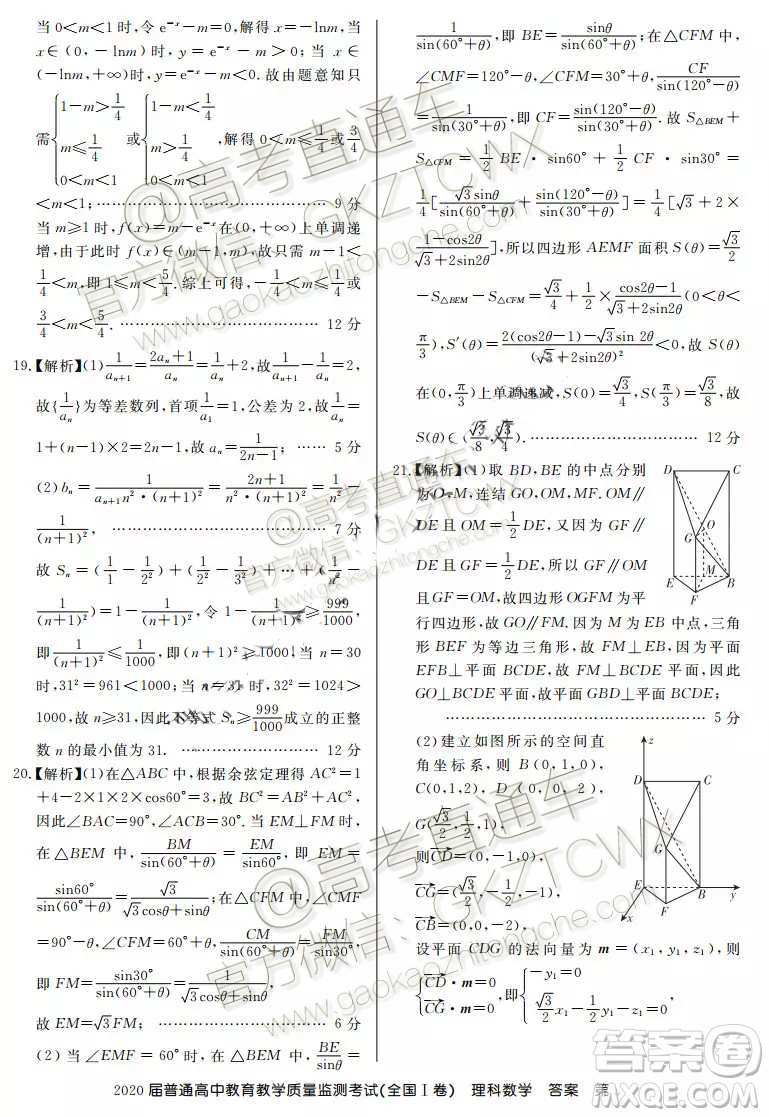 当 0<m<1 时,令 e⁻ˣ-m=0,解得 x=-lnm,当
x∈(0,-lnm)时,y=e⁻ˣ-m>0;当 x∈
(-lnm,+∞)时,y=e⁻ˣ-m<0.故由题意知只
需{1-m>1/4, m≤1/4, 0<m<1 或{1-m≤1/4, m>1/4, 0<m<1,解得 0<m≤1/4或3/4
<m<1;………………………… 9 分
当 m≥1 时,f(x)=m-e⁻ˣ在(0,+∞)上单调递
增,由于此时 f(x)∈(m-1,m),故只需 m-1<
1/4<m,即 1≤m<5/4.综上可得,-1/4<m≤1/4或
3/4<m<5/4.………………………… 12 分
19.【解析】(1)1/aₙ₊₁=(2aₙ+1)/aₙ=1/aₙ+2,故1/aₙ₊₁-1/aₙ=2,
故{1/aₙ}为等差数列,首项1/a₁=1,公差为 2,故1/aₙ=
1+(n-1)×2=2n-1,故 aₙ=1/(2n-1); …… 5 分
(2)bₙ=1/(aₙ₊₁n²·(n+1)²)=(2n+1)/(n²·(n+1)²)=1/n²-
1/(n+1)², ………………………… 7 分
故 Sₙ=(1/1-1/2²)+(1/2²-1/3²)+…+(1/n²-
1/(n+1)²)=1-1/(n+1)²,令 1-1/(n+1)²≥999/1000,
即1/(n+1)²≤1/1000,即(n+1)²≥1000,当 n=30
时,31²=961<1000;当 n=31 时,32²=1024>
1000,故 n≥31,因此不等式 Sₙ≥999/1000成立的正整
数 n 的最小值为 31. ………………………… 12 分
20.【解析】(1)在△ABC 中,根据余弦定理得 AC²=1
+4-2×1×2×cos60°=3,故 BC²=AB²+AC²,
因此∠BAC=90°,∠ACB=30°.当 EM⊥FM 时,
在△BEM 中,BM/sin(60°+θ)=EM/sin60°,即 EM=
sin60°/sin(60°+θ)=√3/(√3cosθ+sinθ);在△CFM 中,∠CMF
=90°-θ,∠CFM=60°+θ,CM/sin(60°+θ)=FM/sin30°,
即 FM=sin30°/sin(60°+θ)=1/(√3cosθ+sinθ),
故 EM=√3FM; ………………………… 6 分
(2)当∠EMF=60°时,在△BEM 中,BE/sinθ=
1/sin(60°+θ),即 BE=sinθ/sin(60°+θ);在△CFM 中,
∠CMF=120°-θ,∠CFM=30°+θ,CF/sin(120°-θ)
=1/sin(30°+θ),即 CF=sin(120°-θ)/sin(30°+θ).故 S△BEM+
S△CFM=1/2 BE·sin60°+1/2 CF·sin30°=
1/4[√3sinθ/sin(60°+θ)+sin(120°-θ)/sin(30°+θ)]=1/4[√3+2×
(1-cos2θ)/(√3+2sin2θ)],所以四边形 AEMF 面积 S(θ)=√3/2
-S△BEM-S△CFM=√3/4+1/2×(cos2θ-1)/(√3+2sin2θ)(0<θ<
π/3),S′(θ)=(2(cos2θ-1)-√3sin 2θ)/(√3+2sin2θ)²<0,故 S(θ)
在(0,π/3)上单调递减,S(0)=√3/4,S(π/3)=√3/8,故
S(θ)∈(√3/8,√3/4).………………………… 12 分
21.【解析】(1)取 BD,BE 的中点分别
为 O,M,连结 GO,OM,MF.OM∥
DE 且 OM=1/2DE,又因为 GF∥
DE 且 GF=1/2DE,所以 GF∥OM
且GF=OM,故四边形 OGFM 为平
行四边形,故 GO∥FM.因为 M 为 EB 中点,三角
形 BEF 为等边三角形,故 FM⊥EB,因为平面
EFB⊥平面 BCDE,故 FM⊥BCDE 平面,因此
GO⊥BCDE 平面,故平面 GBD⊥平面 BCDE;
………………………… 5 分
D C O G E M B F
(2)建立如图所示的空间直
角坐标系,则 B(0,1,0),
C(0,1,2), D(0,0,2),
G(√3/2,1/2,1),
则CD=(0,-1,0),
CG=(√3/2,-1/2,-1),
CB=(0,0,-2),
z D C G E B F x y
设平面 CDG 的法向量为 m=(x₁,y₁,z₁),则
{CD·m=0, CG·m=0,即{-y₁=0, √3/2x₁-1/2y₁-z₁=0,
2020 届普通高中教育教学质量监测考试(全国Ⅰ卷) 理科数学 答案 第
@高考直通车
官方微信:GKZTCWX
www.gaokaozhitongche.com
答案圈